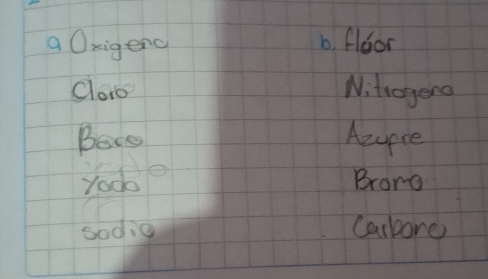 a Oxigeno
Cloro
Yodo
sodio
b. flúor
Nitrogeno
Azufre
Bromo
Carbono